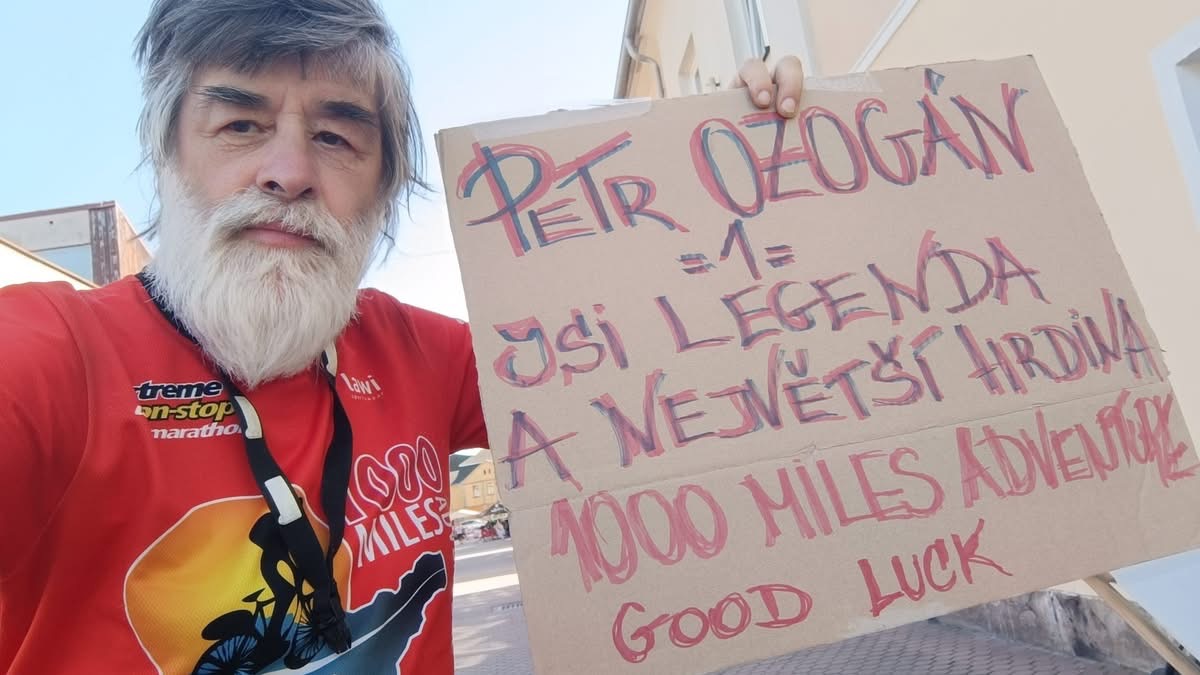 PETR OZOGÁN
=1=
JSI LEGENDA
A NEJVĚTŠÍ HRDINA
1000 MILES ADVENTURE
GOOD LUCK
-treme
on-stop
marathon
Lawi
1000
MILES